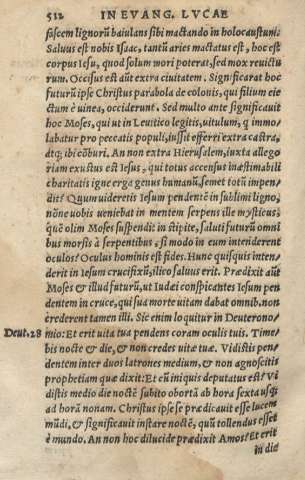 512 IN EVANG. LVCAE
fascem lignorū baiulans sibi mactando in holocaustum:
Saluus est nobis Isaac, tantū aries mactatus est, hoc est
corpus Iesu, quod solum mori poterat, sed mox reuictu
rum. Occisus est aūt extra ciuitatem. Significarat hoc
futurū ipse Christus parabola de colonis, qui filium eie
ctum è uinea, occiderunt. Sed multo ante significauit
hoc Moses, qui ut in Leuitico legitis, uitulum, q immo/
labatur pro peccatis populi, iussit efferri extra castra,
atq; ibi cōburi. An non extra Hierusalem, iuxta allego
riam exustus est Iesus, qui totus accensus inæstimabili
charitatis igne erga genus humanū, semet totū impen/
dit? Quum uideretis Iesum pendentē in sublimi ligno,
nōne uobis ueniebat in mentem serpens ille mysticus,
quē olim Moses suspendit in stipite, saluti futurū omni
bus morsis à serpentibus, si modo in eum intenderent
oculos? Oculus hominis est fides. Hunc quisquis inten/
derit in Iesum crucifixū, ilico saluus erit. Prædixit aūt
Moses & illud futurū, ut Iudæi conspicantes Iesum pen
dentem in cruce, qui sua morte uitam dabat omnib. non
crederent tamen illi. Sic enim loquitur in Deuterono/
Deut.28 mio: Et erit uita tua pendens coram oculis tuis. Time/
bis nocte & die, & non credes uitæ tuæ. Vidistis pen/
dentem inter duos latrones medium, & non agnoscitis
prophetiam quæ dixit: Et cū iniquis deputatus est? Vi
distis medio die noctē subito obortā ab hora sexta usq;
ad horā nonam. Christus ipse se prædicauit esse lucem
mūdi, & significauit instare noctē, quū tollendus esset
è mundo. An non hoc dilucide prædixit Amos? Et erit
in die